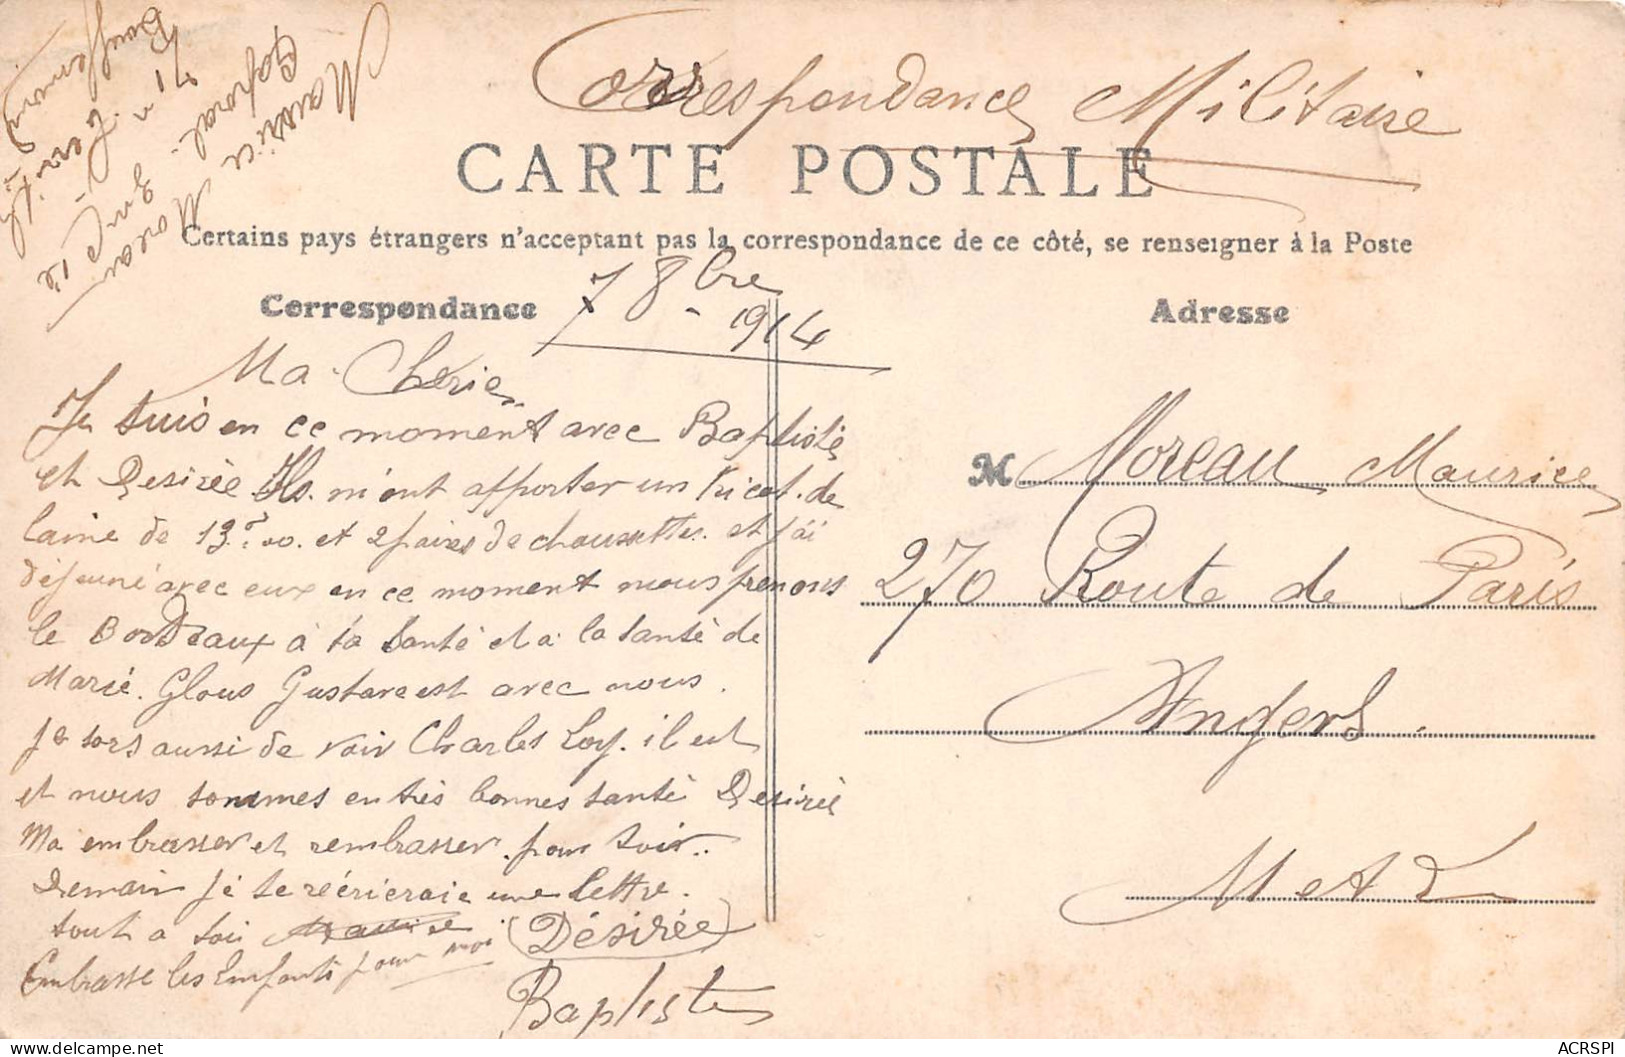 Correspondance Militaire
CARTE POSTALE
Certains pays étrangers n'acceptant pas la correspondance de ce côté, se renseigner à la Poste
Maurice Moreau
Caporal
71
Correspondance
7 8bre
1914
Adresse
Ma Cherie
Je suis en ce moment avec Baptiste
et Desirée Ils m'ont apporter un tricot de
laine de 13f00. et 2 paires de chaussettes. et j'ai
déjeuné avec eux en ce moment nous prenons
le Bordeaux à ta Santé et a la santé de
Marie. Gustave est avec nous.
je sors aussi de voir Charles Loy. il est
et nous sommes en très bonnes santé Desirée
Ma embrasser et rembrasser pour toi.
Demain je te reécrieraie une lettre.
tout a toi Maurice (Désirée)
Embrasse les Enfants pour moi
Baptiste
M Moreau Maurice
270 Route de Paris
Angers.
M et L
ACRSPI